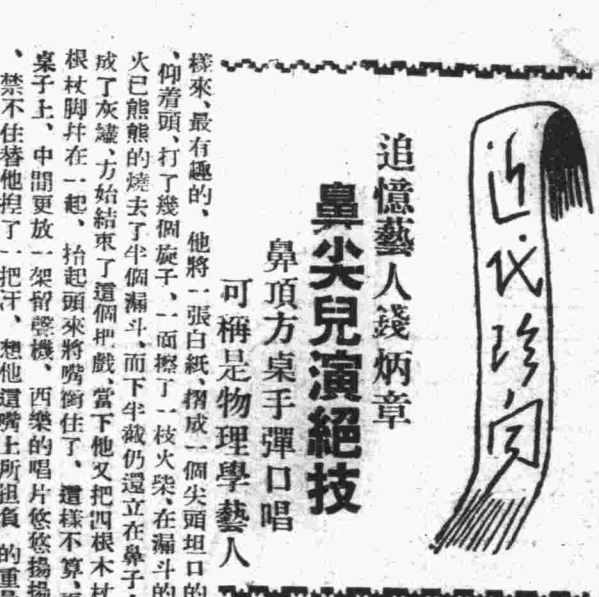 近代珍聞
追憶藝人錢炳章
鼻尖兒演絕技
鼻頂方桌手彈口唱
可稱是物理學藝人
樣來、最有趣的、他將一張白紙、摺成一個尖頭坦口的
、仰着頭、打了幾個旋子、一面擦了一枝火柴、在漏斗的
火已熊熊的燒去了半個漏斗、而下半截仍還立在鼻子
成了灰燼、方始結束了這個把戲、當下他又把四根木杖
根杖脚并在一起、抬起頭來將嘴銜住了、這樣不算、
桌子上、中間更放一架留聲機、西樂的唱片悠悠揚揚
、禁不住替他揑了一把汗、想他這嘴上所担負的重